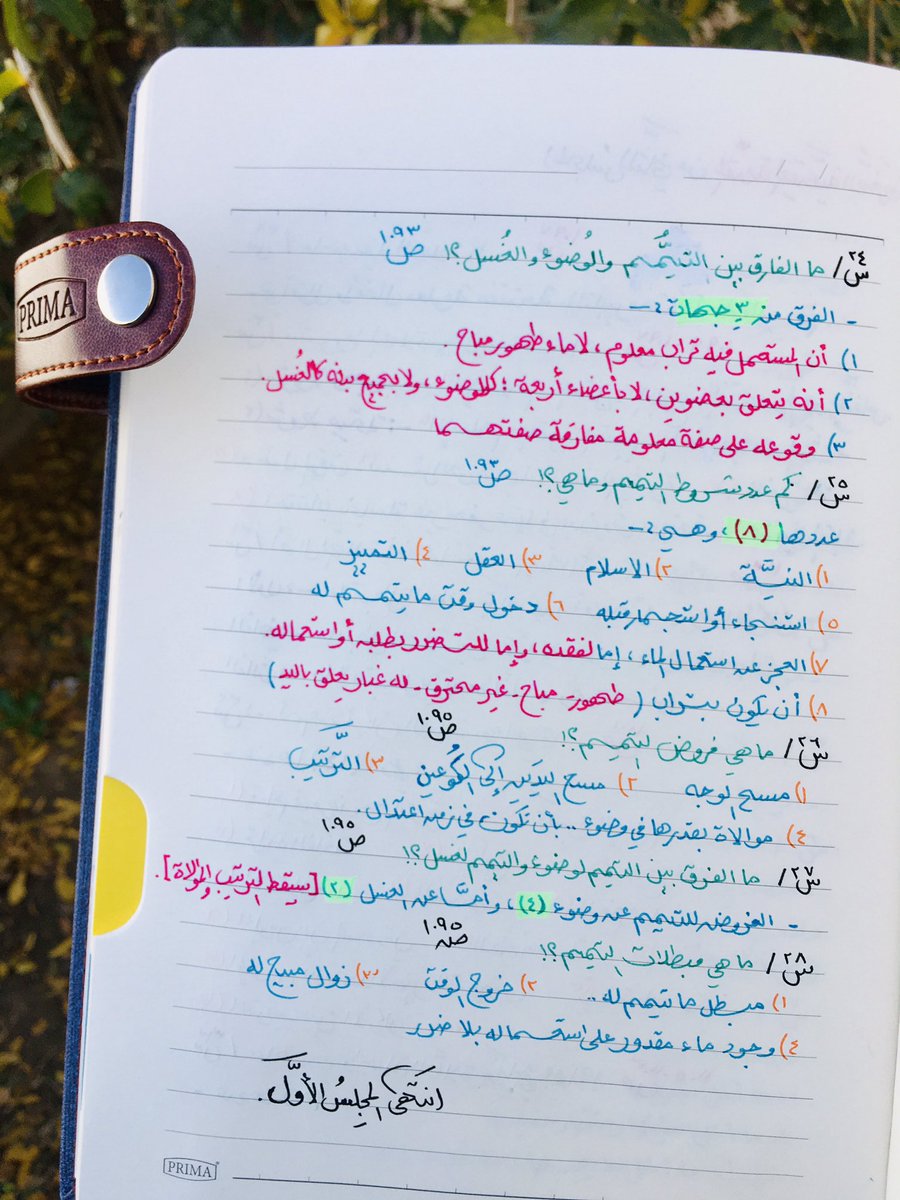 س٢٤/ ما الفارق بين التيمُّم والوُضوء والغُسل؟! ص١٠٩٣
- الفرق من ٣ جهات :-
١) أن المستعمل فيه تراب معلوم، لا ماء طهور مباح.
٢) أنه يتعلق بعضوين، لا بأعضاء أربعة؛ كالوضوء، ولا بجميع بدنه كالغُسل.
٣) وقوعه على صفة معلومة مفارقة صفتهما
س٢٥/ كم عدد شروط التيمم وما هي؟! ص١٠٩٣
عددها (٨)، وهي :-
١) النيَّة ٢) الاسلام ٣) العقل ٤) التمييز
٥) استنجاء أو استجمار قبله ٦) دخول وقت ما يتيمم له
٧) العجز عن استعمال الماء، إما لفقده، وإما للتضرر بطلبه أو استعماله.
٨) أن يكون بتراب (طهور - مباح - غير محترق - له غبار يعلق باليد)
س٢٦/ ما هي فروض التيمم؟! ص١٠٩٥
١) مسح الوجه ٢) مسح اليدين إلى الكُوعين ٣) التَّرتيب
٤) موالاة بقدرها في وضوء.. بأن تكون في زمن اعتدال.
س٢٧/ ما الفرق بين التيمم لوضوء والتيمم لغسل؟! ص١٠٩٥
- الفروض للتيمم عن وضوء (٤)، وأمَّا عن الغسل (٢) [يسقط الترتيب والموالاة].
س٢٨/ ما هي مبطلات التيمم؟! ص١٠٩٥
١) مبطل ما تيمم له.. ٢) خروج الوقت ٣) زوال مبيح له
٤) وجود ماء مقدور على استعماله بلا ضرر
انتهى المجلسُ الأوَّل.
PRIMA
PRIMA